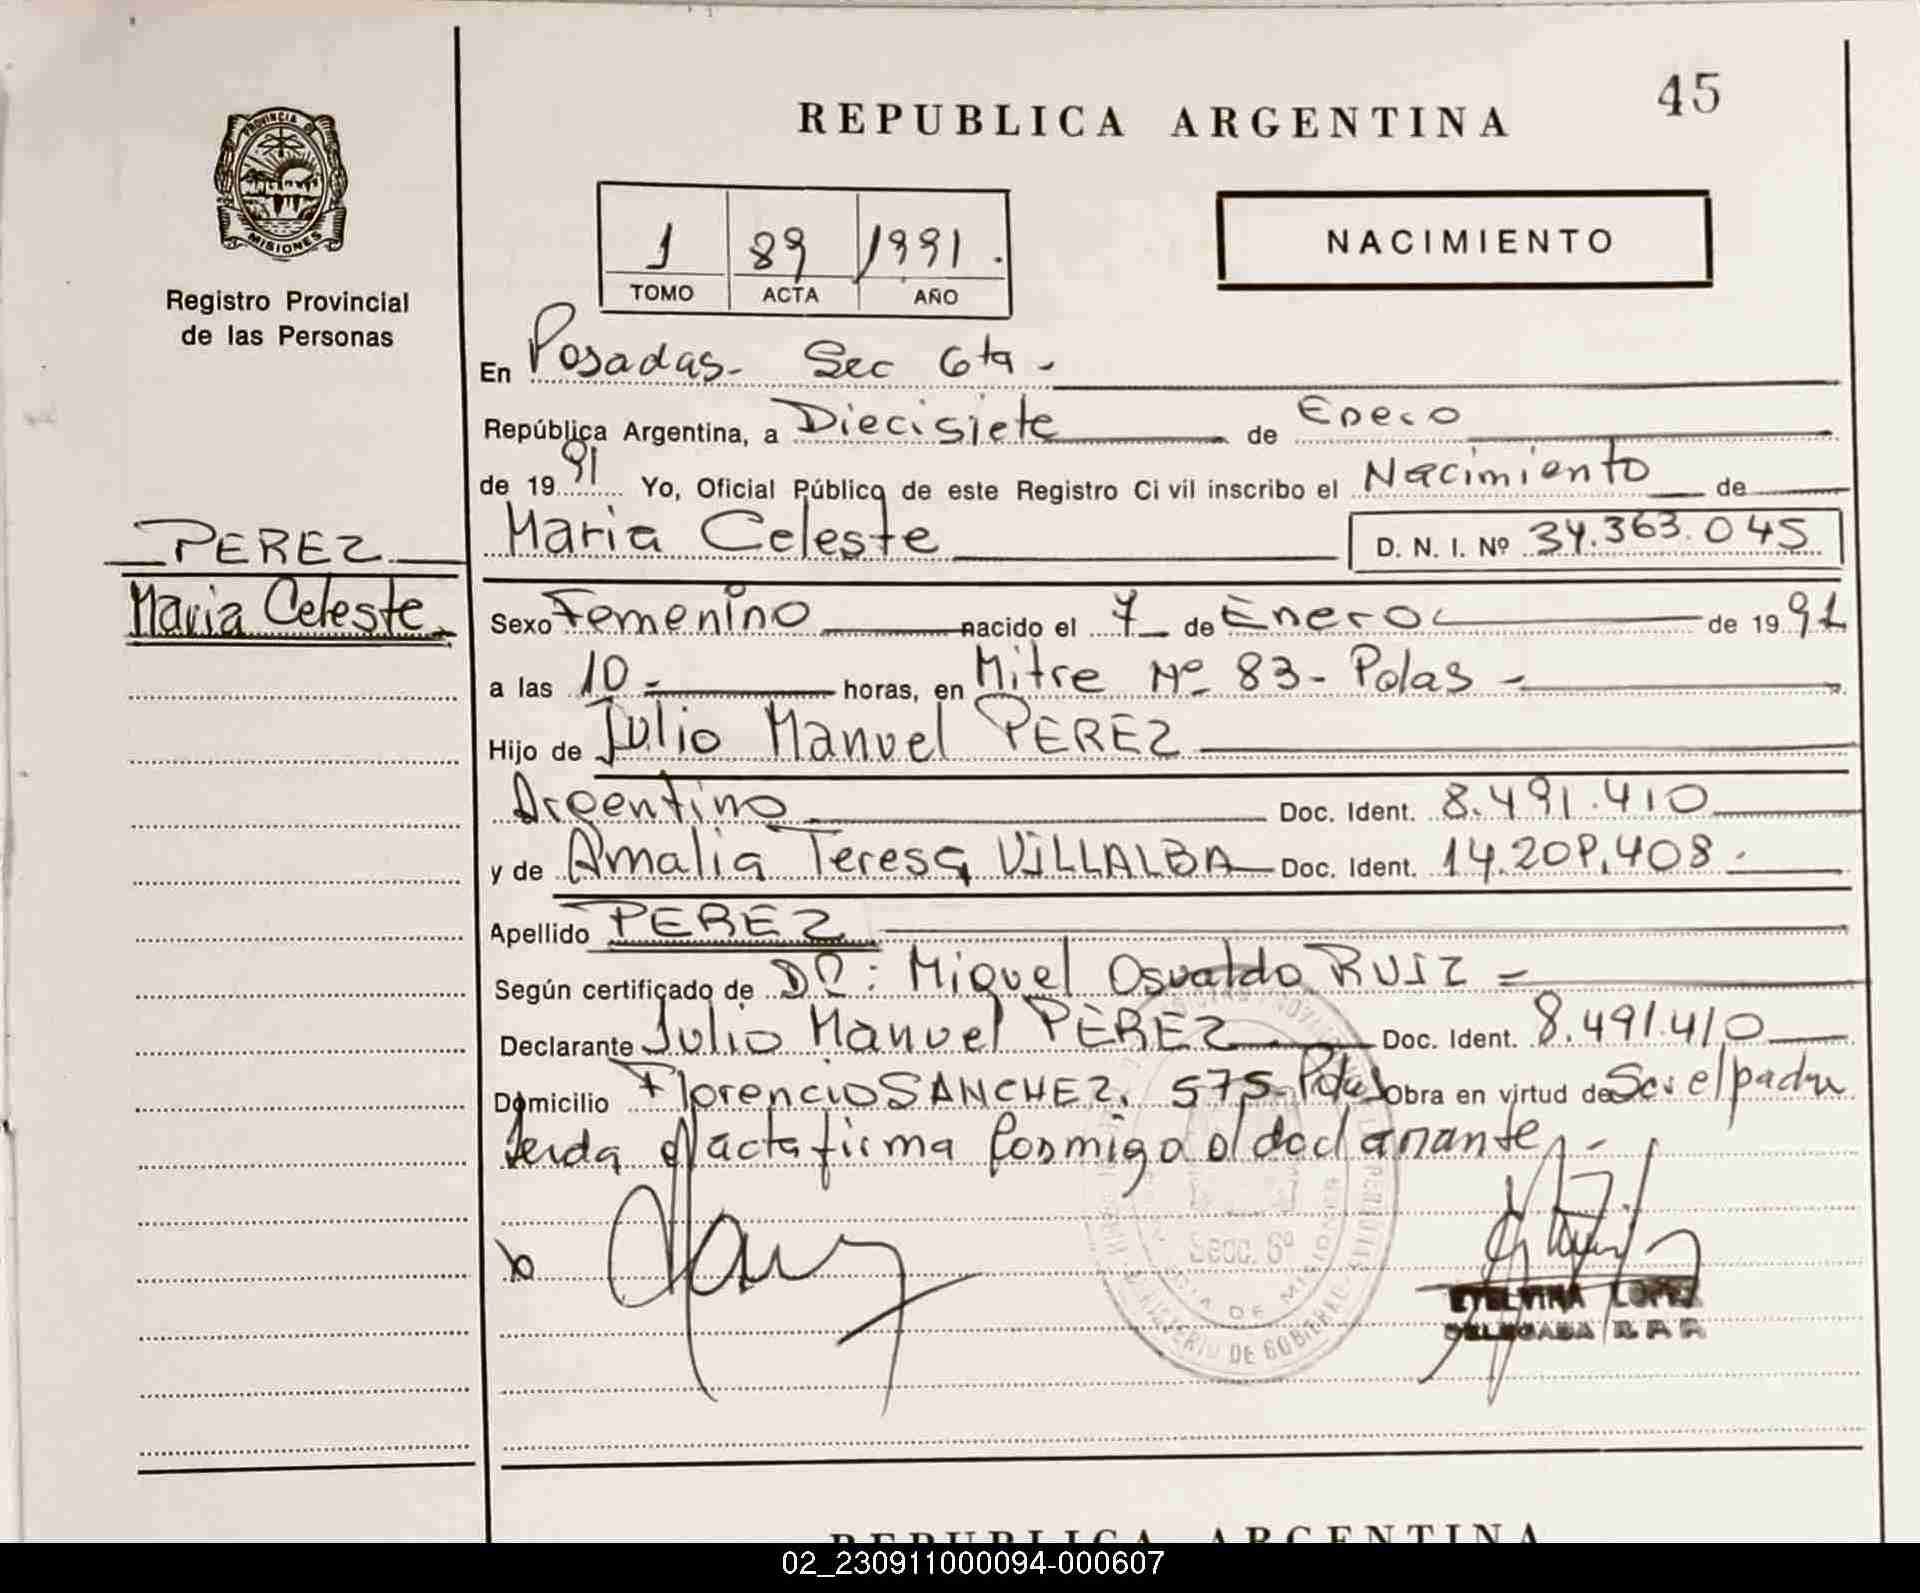 45
REPUBLICA ARGENTINA
PROVINCIA DE
MISIONES
Registro Provincial
de las Personas
1 89 1991.
TOMO ACTA AÑO
NACIMIENTO
En Posadas- Sec 6ta -
República Argentina, a Diecisiete de Enero
de 19 91 Yo, Oficial Público de este Registro Civil inscribo el Nacimiento de
PEREZ
Maria Celeste
Maria Celeste D. N. I. Nº 34.363.045
Sexo Femenino nacido el 7 de Enero de 19 91
a las 10 - horas, en Mitre Nº 83 - Pdas -
Hijo de Julio Manuel PEREZ
Argentino Doc. Ident. 8.491.410
y de Amalia Teresa VILLALBA Doc. Ident. 14.208.408 -
Apellido PEREZ
Según certificado de Dr: Miguel Osvaldo RUIZ =
Declarante Julio Manuel PEREZ Doc. Ident. 8.491.410
Domicilio Florencio SANCHEZ. 575- Pdas Obra en virtud de Ser el padre
Leida el acta firma Conmigo el declarante -
Secc. 6ª
MINISTERIO DE GOBIERNO
DE MISIONES
ETELVINA LOPEZ
DELEGADA R. P. P.
REPUBLICA ARGENTINA
02_230911000094-000607